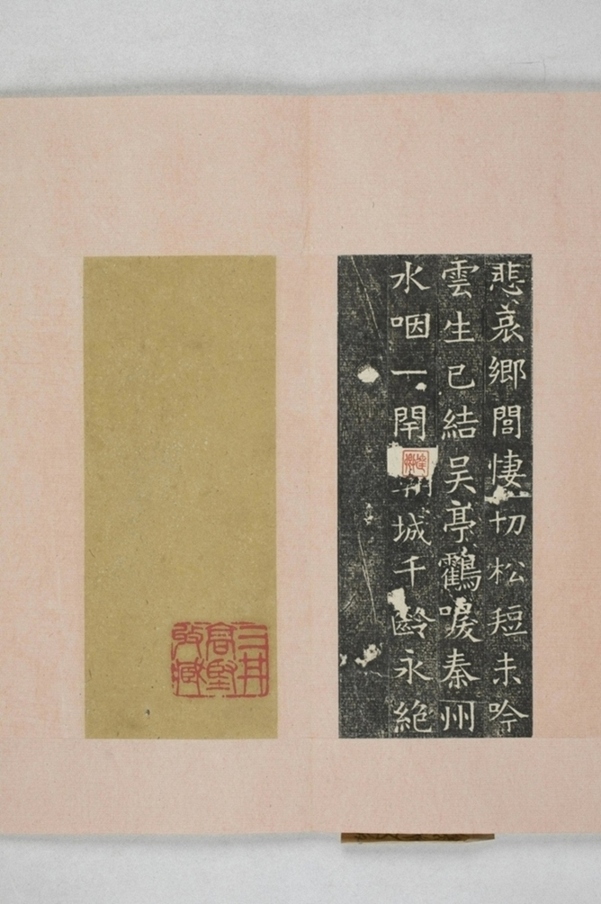 悲哀鄉閭悽切松短未吟
雲生已結吴亭鸛唳秦州
水咽一閇城千齡永絶
三井
高堅